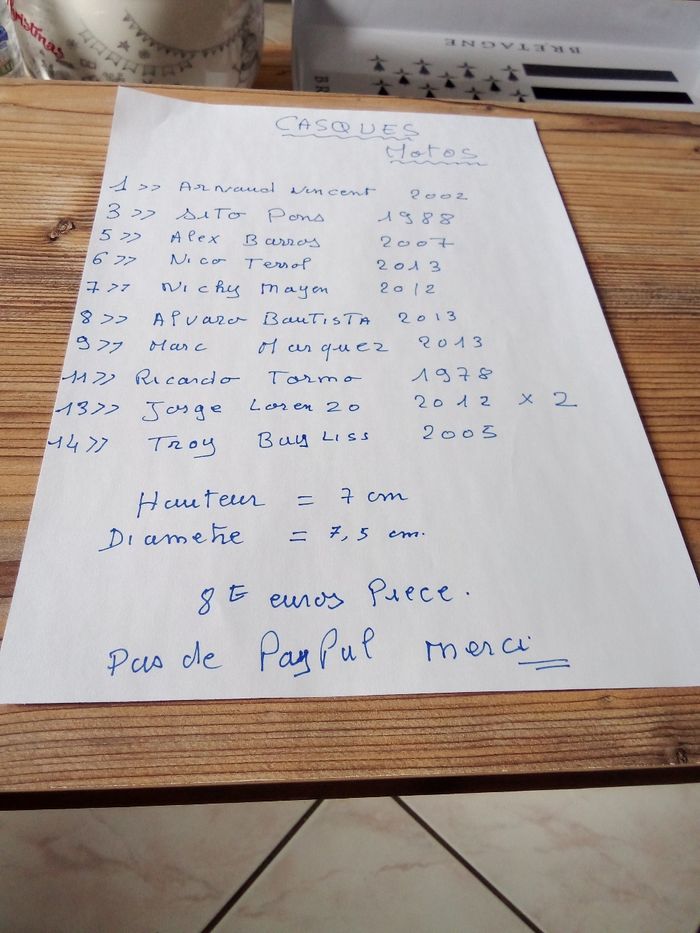 Christmas
BRETAGNE
BR
CASQUES
Motos
1 >> Arnaud Vincent 2002
3 >> SITO Pons 1988
5 >> Alex Barros 2007
6 >> Nico Terrol 2013
7 >> Nichy Mayen 2012
8 >> Alvaro BAUTISTA 2013
9 >> Marc Marquez 2013
11 >> Ricardo Tormo 1978
13 >> Jorge Lorenzo 2012 x 2
14 >> Troy Bayliss 2005
Hauteur = 7 cm
Diametre = 7,5 cm.
8 E euros Piece.
Pas de PayPal merci